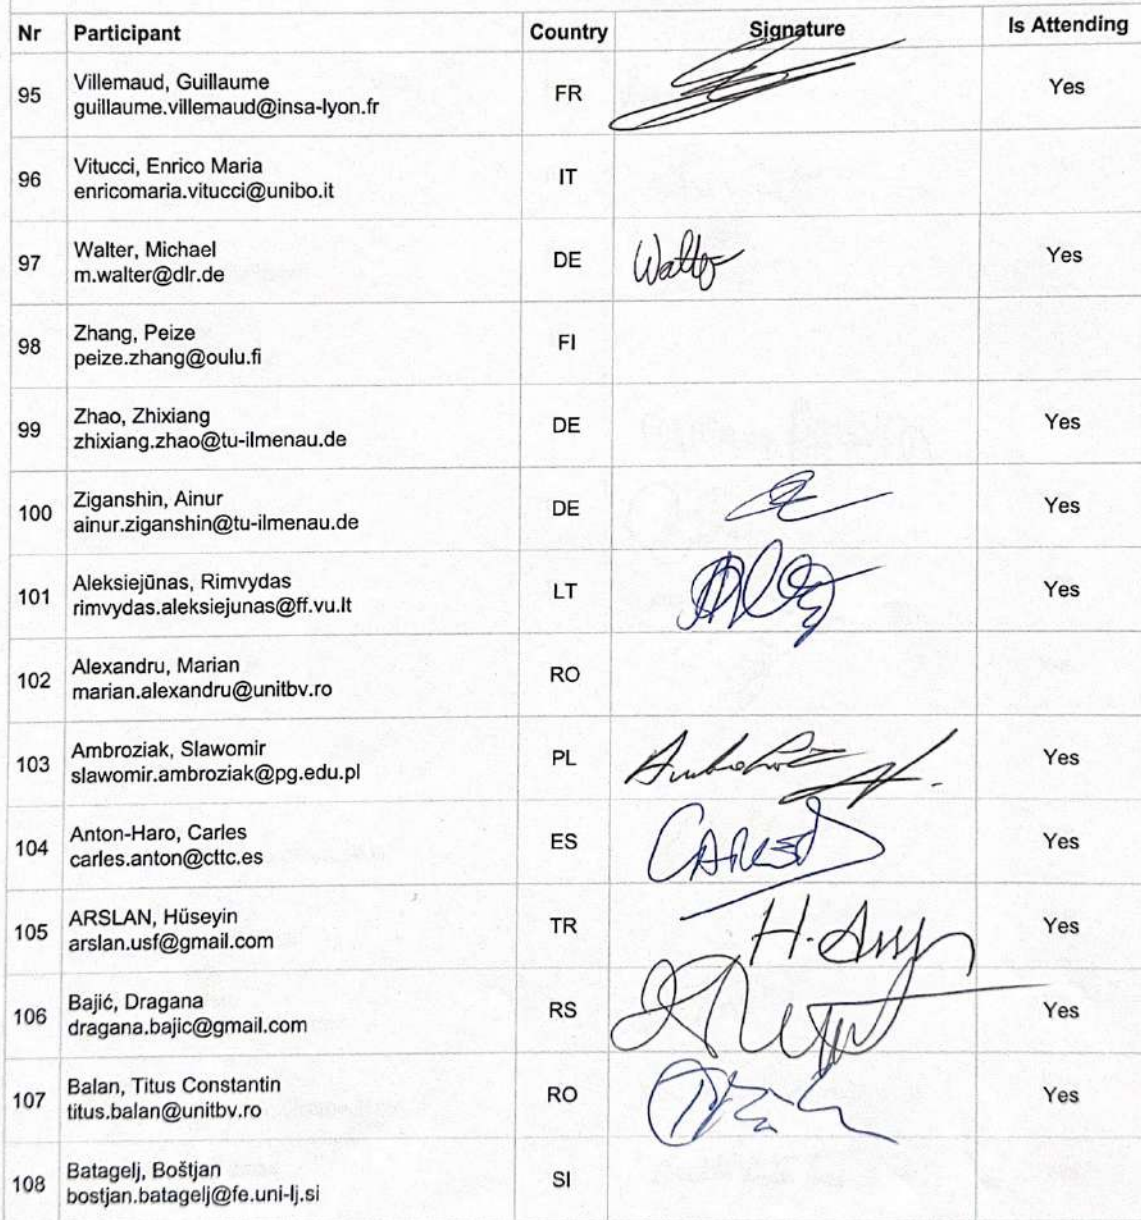 Nr Participant Country Signature Is Attending
95 Villemaud, Guillaume
guillaume.villemaud@insa-lyon.fr FR Yes
96 Vitucci, Enrico Maria
enricomaria.vitucci@unibo.it IT
97 Walter, Michael
m.walter@dlr.de DE Walter Yes
98 Zhang, Peize
peize.zhang@oulu.fi FI
99 Zhao, Zhixiang
zhixiang.zhao@tu-ilmenau.de DE Yes
100 Ziganshin, Ainur
ainur.ziganshin@tu-ilmenau.de DE Yes
101 Aleksiejūnas, Rimvydas
rimvydas.aleksiejunas@ff.vu.lt LT Yes
102 Alexandru, Marian
marian.alexandru@unitbv.ro RO
103 Ambroziak, Slawomir
slawomir.ambroziak@pg.edu.pl PL Yes
104 Anton-Haro, Carles
carles.anton@cttc.es ES Yes
105 ARSLAN, Hüseyin
arslan.usf@gmail.com TR Yes
106 Bajić, Dragana
dragana.bajic@gmail.com RS Yes
107 Balan, Titus Constantin
titus.balan@unitbv.ro RO Yes
108 Batagelj, Boštjan
bostjan.batagelj@fe.uni-lj.si SI